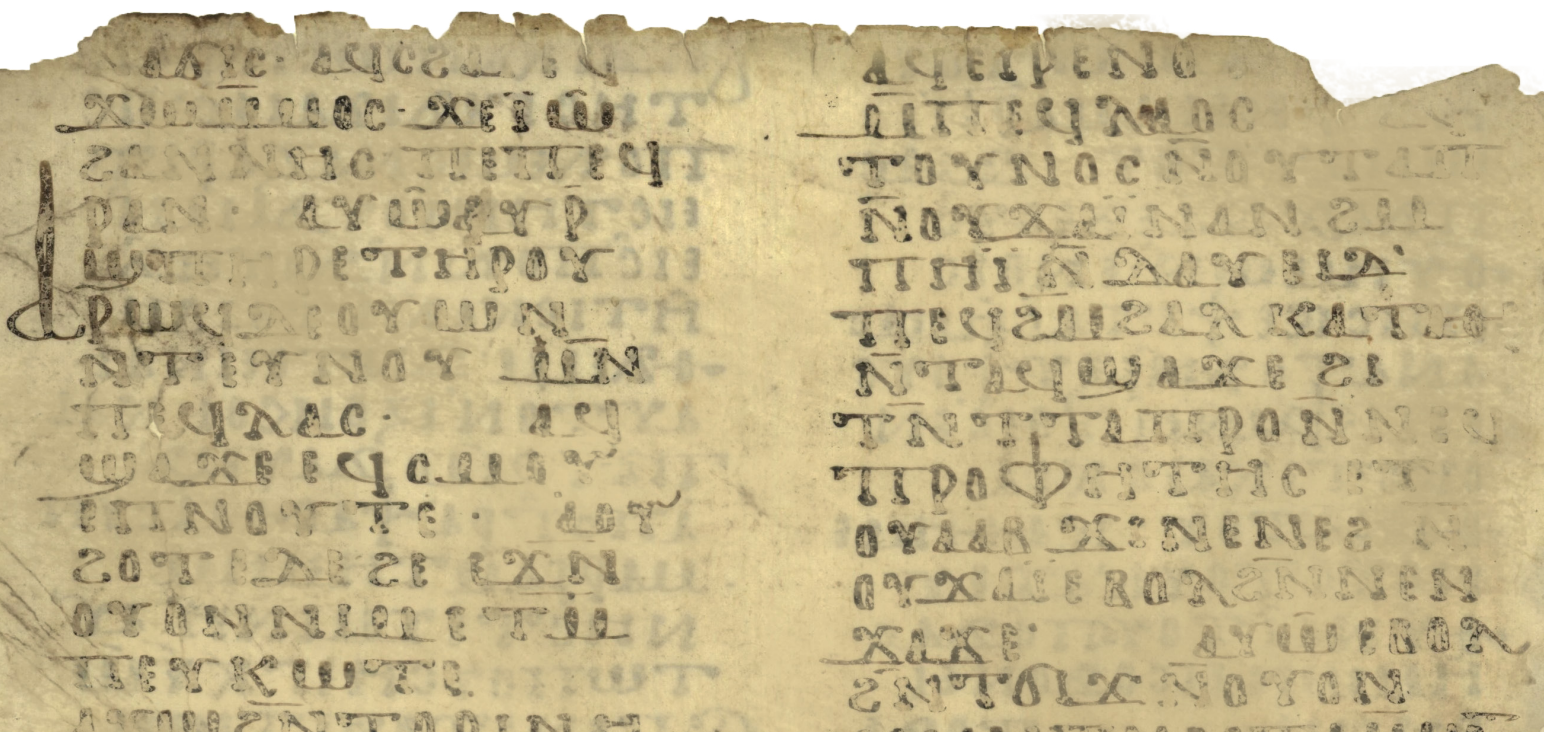 ⲁⲕⲓⲥ· ⲁϥⲥϩⲁⲓ ⲉϥ
ϫⲱⲙ̄ⲙⲟⲥ· ϫⲉⲓ̈ⲱ̄
ϩⲁⲛⲛⲏⲥ ⲡⲉⲡⲉϥ
ⲣⲁⲛ· ⲁⲩⲱⲁⲩⲣ̄
ϣⲡⲏⲣⲉⲧⲏⲣⲟⲩ
ⲁⲣⲱϥⲇⲉⲟⲩⲱⲛ
ⲛ̄ⲧⲉⲩⲛⲟⲩ ⲙⲛ̄
ⲡⲉϥⲗⲁⲥ· ⲁϥ
ϣⲁϫⲉⲉϥⲥⲙⲟⲩ
ⲉⲡⲛⲟⲩⲧⲉ· ⲁⲟⲩ
ϩⲟⲧⲉⲇⲉϩⲉ ⲉϫⲛ̄
ⲟⲩⲟⲛⲛⲓⲙⲉⲧⲙ̄
ⲡⲉⲩⲕⲱⲧⲉ
ⲁⲩⲱϩⲛ̄ⲧⲟⲣⲓⲛⲏ
ⲁϥⲉⲓⲣⲉⲛⲟ
ⲙ̄ⲡⲉϥⲗⲁⲟⲥ
ⲧⲟⲩⲛⲟⲥⲛ̄ⲟⲩⲧⲁⲡ
ⲛ̄ⲟⲩϫⲁⲓ̈ⲛⲁⲛϩⲙ̄
ⲡⲏⲓ̈ⲛ̄ⲇⲁⲩⲉⲓⲇ·
ⲡⲉϥϩⲙ̄ϩⲁⲗⲕⲁⲧⲁⲑⲉ
ⲛ̄ⲧⲁϥϣⲁϫⲉϩⲓ
ⲧⲛ̄ⲧⲧⲁⲡⲣⲟⲛ̄ⲛⲉϥ
ⲡⲣⲟⲫⲏⲧⲏⲥ ⲉⲧ
ⲟⲩⲁⲁⲃ ϫⲓⲛⲉⲛⲉϩ ⲛ̄
ⲟⲩϫⲁⲓ̈ⲉⲃⲟⲗϩⲛ̄ⲛⲉⲛ
ϫⲁϫⲉ· ⲁⲩⲱⲉⲃⲟⲗ
ϩⲛ̄ⲧϭⲓϫⲛ̄ⲟⲩⲟⲛ